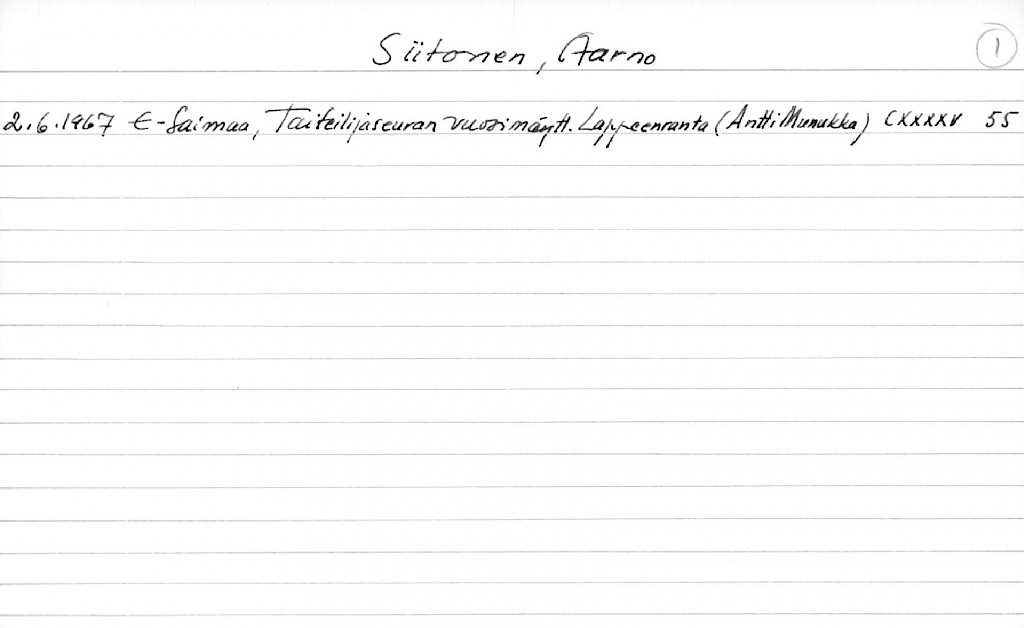 Siitonen, Aarno
1
2.6.1967 E-Saimaa, Taiteilijaseuran vuosinäytt. Lappeenranta (Antti Munukka) CXXXXV 55